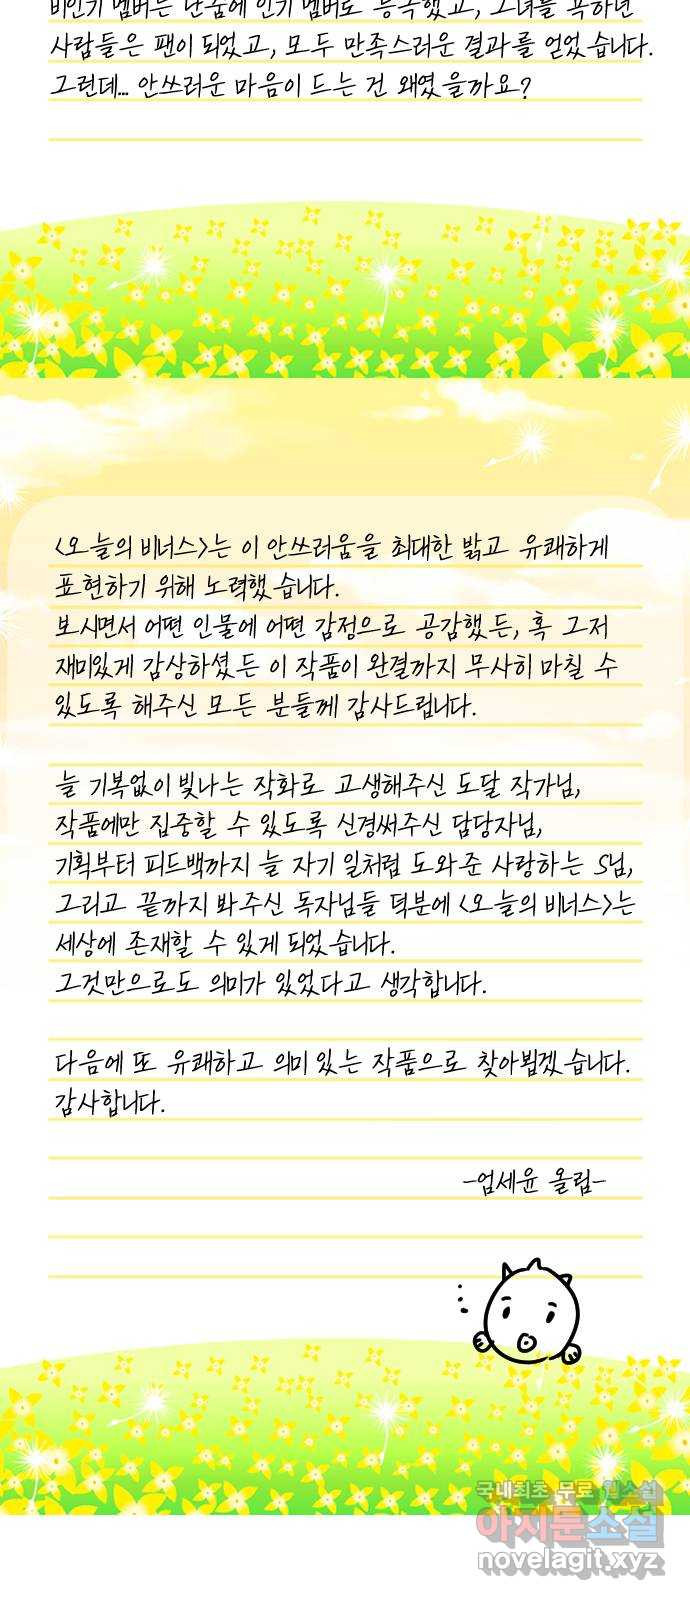 비인기 멤버는 단숨에 인기 멤버로 등극했고, 그녀를 욕하던
사람들은 팬이 되었고, 모두 만족스러운 결과를 얻었습니다.
그런데... 안쓰러운 마음이 드는 건 왜였을까요?
<오늘의 비너스>는 이 안쓰러움을 최대한 밝고 유쾌하게
표현하기 위해 노력했습니다.
보시면서 어떤 인물에 어떤 감정으로 공감했든, 혹 그저
재미있게 감상하셨든 이 작품이 완결까지 무사히 마칠 수
있도록 해주신 모든 분들께 감사드립니다.
늘 기복없이 빛나는 작화로 고생해주신 도달 작가님,
작품에만 집중할 수 있도록 신경써주신 담당자님,
기획부터 피드백까지 늘 자기 일처럼 도와준 사랑하는 S님,
그리고 끝까지 봐주신 독자님들 덕분에 <오늘의 비너스>는
세상에 존재할 수 있게 되었습니다.
그것만으로도 의미가 있었다고 생각합니다.
다음에 또 유쾌하고 의미있는 작품으로 찾아뵙겠습니다.
감사합니다.
-엄세윤 올림-
국내최초 무료 웹소설
아지툰소설
novelagit.xyz